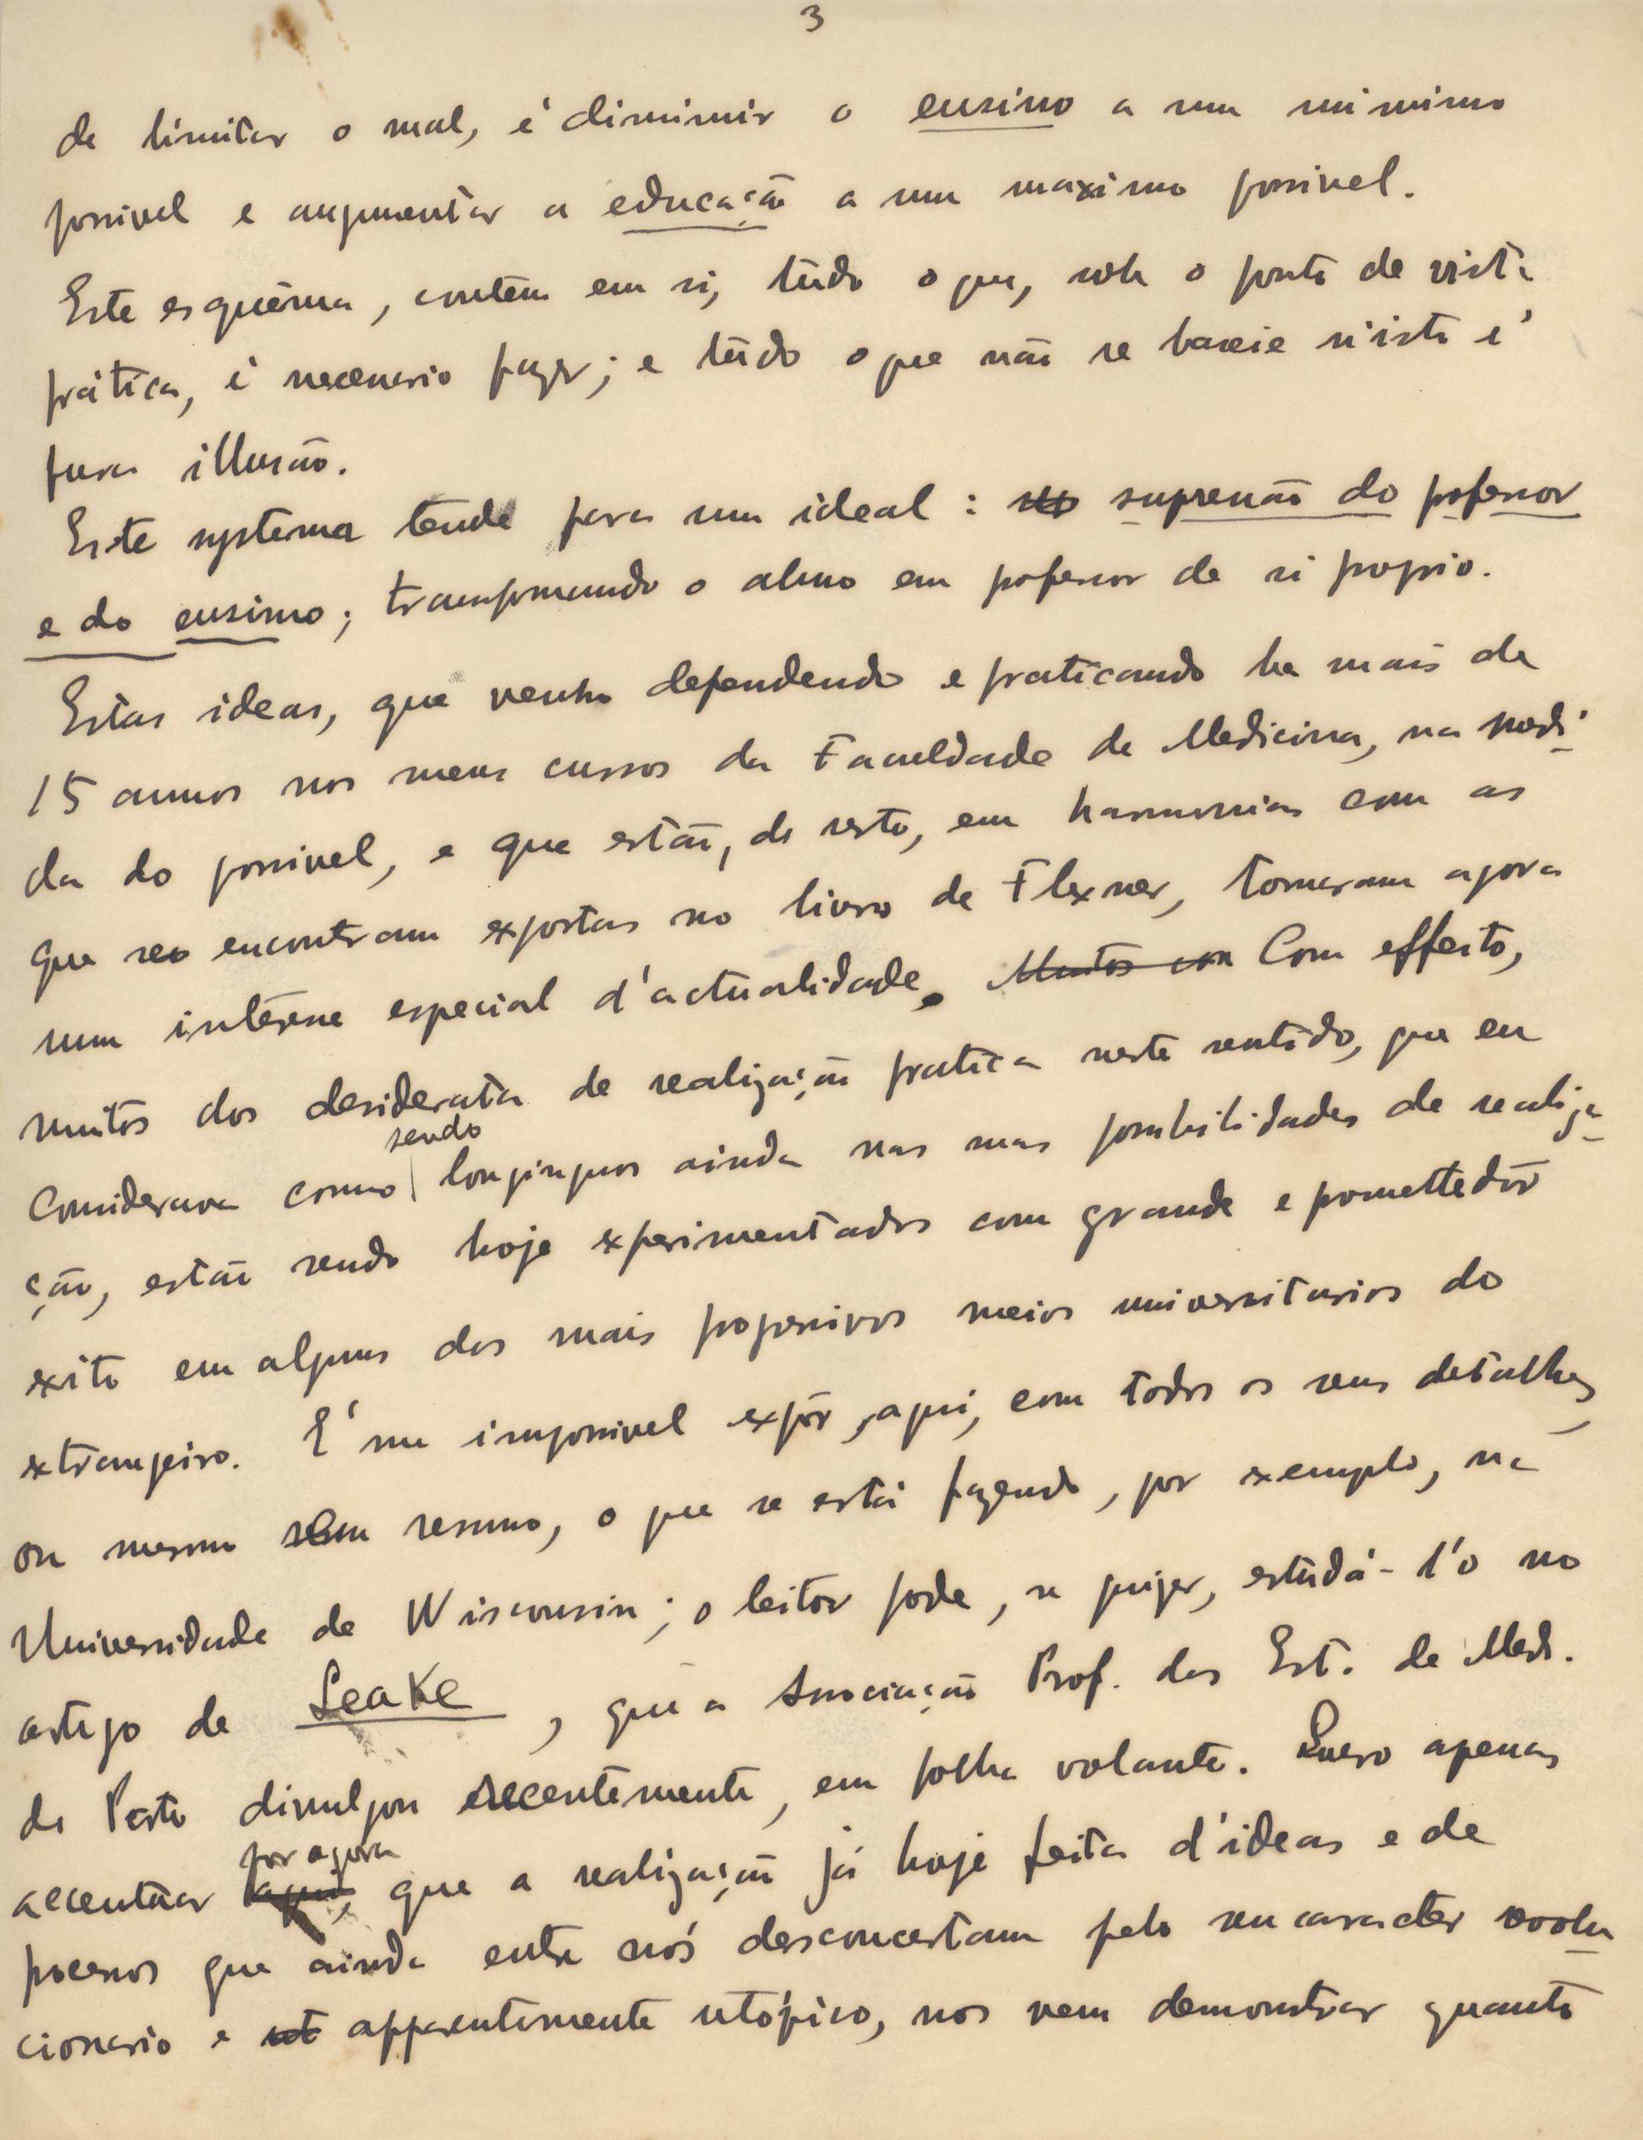 3
de limitar o mal, é diminuir o ensino a um minimo
possivel e augmentar a educação a um maximo possivel.
Este esquêma, contêm em si, tudo o que, sob o ponto de vista
prática, é necessario fazer; e tudo o que não se baseie n'isto é
pura illusão.
Este systema tende para um ideal: supressão do professor
e do ensino; transformando o aluno em professor de si proprio.
Estas ideas, que venho defendendo e praticando ha mais de
15 annos nos meus cursos da Faculdade de Medicina, na medi-
da do possivel, e que estão, de resto, em harmonia com as
que se encontram expostas no livro de Flexner, tomaram agora
um interesse especial d'actualidade. Muitos con Com effeito,
muitos dos desiderata de realização pratica neste sentido, que eu
sendo
considerava como longinquos ainda nas suas possibilidades de realiza-
ção, estão sendo hoje experimentados com grande e promettedôr
exito em alguns dos mais progressivos meios universitarios do
extrangeiro. É me impossivel expôr, aqui, com todos os seus detalhes,
ou mesmo em resumo, o que se está fazendo, por exemplo, na
Universidade de Wisconsin; o leitor pode, se quizer, estudá-l'o no
artigo de Leake, que a Associação Prof. dos Est. de Med.
do Porto divulgou recentemente, em folha volante. Quero apenas
por agora
accentuar aqui, que a realização já hoje feita d'ideas e de
processos que ainda entre nós desconcertam pelo seu caracter revolu-
cionario e ut apparentemente utópico, nos vem demonstrar quanto